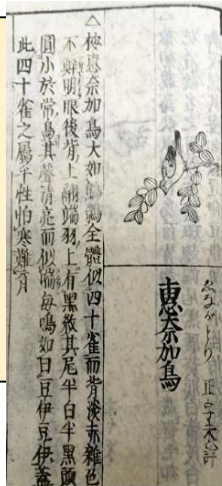 ゑながどり 正字未詳
惠奈加鳥
△按惠奈加鳥大如全體似四十雀而背淡赤雜色
不鮮明眼後背上翮端羽上有黒紋其尾半白半黒頭
圓小於常鳥其聲清亮而似每鳴如曰豆伊豆伊蓋
此四十雀之屬乎性怕寒難育